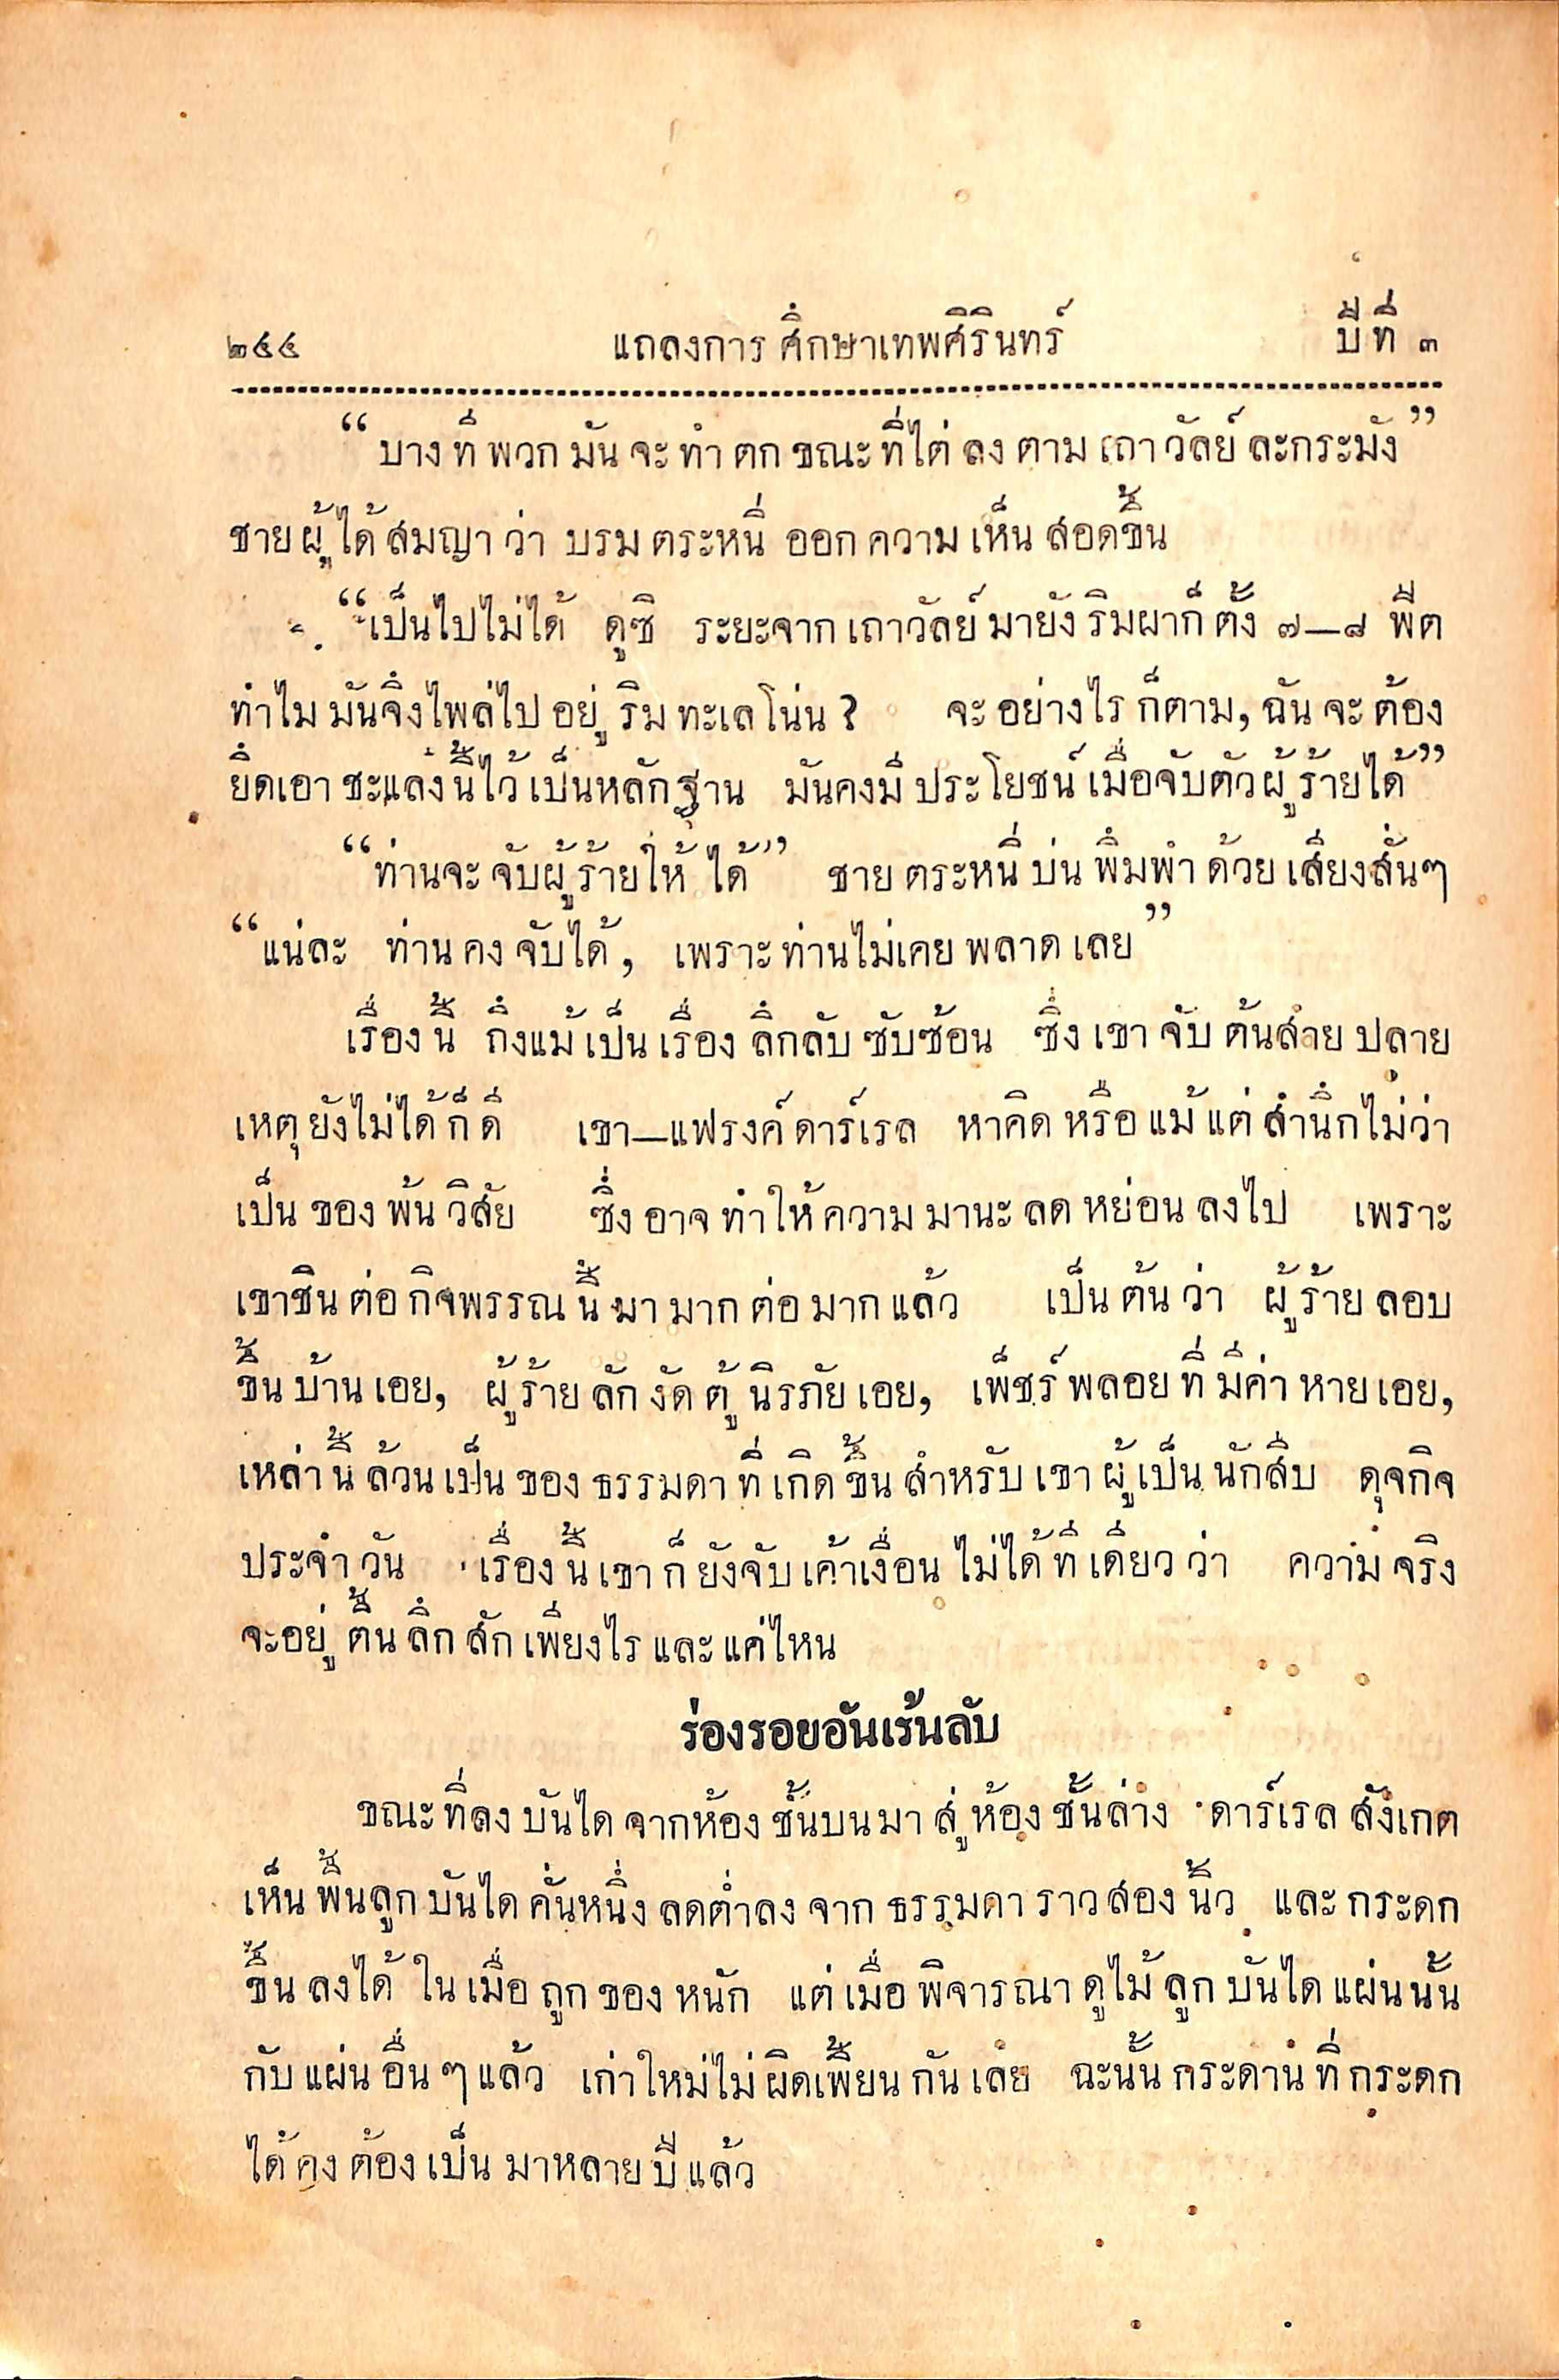 ๒๔๔ แถลงการศึกษาเทพศิรินทร์ ปีที่ ๓
“บางทีพวกมันจะทำตกขณะที่ไต่ลงตามเถาวัลย์ละกระมัง”
ชายผู้ได้สมญาว่า บรมตระหนี่ ออกความเห็นสอดขึ้น
“เป็นไปไม่ได้ ดูซิ ระยะจากเถาวัลย์มายังริมผาก็ตั้ง ๗—๘ ฟีต
ทำไมมันจึงไพล่ไปอยู่ริมทะเลโน่น? จะอย่างไรก็ตาม, ฉันจะต้อง
ยึดเอาชะแลงนี้ไว้เป็นหลักฐาน มันคงมีประโยชน์เมื่อจับตัวผู้ร้ายได้”
“ท่านจะจับผู้ร้ายให้ได้” ชายตระหนี่บ่นพึมพำด้วยเสียงสั่นๆ
“แน่ละ ท่านคงจับได้, เพราะท่านไม่เคยพลาดเลย”
เรื่องนี้ ถึงแม้เป็นเรื่องลึกลับซับซ้อน ซึ่งเขาจับต้นสายปลาย
เหตุยังไม่ได้ก็ดี เขา—แฟรงค์ดาร์เรล หาคิดหรือแม้แต่สำนึกไม่ว่า
เป็นของพ้นวิสัย ซึ่งอาจทำให้ความมานะลดหย่อนลงไป เพราะ
เขาชินต่อกิจพรรณนี้มามากต่อมากแล้ว เป็นต้นว่า ผู้ร้ายลอบ
ขึ้นบ้านเอย, ผู้ร้ายลักงัดตู้นิรภัยเอย, เพ็ชร์พลอยที่มีค่าหายเอย,
เหล่านี้ล้วนเป็นของธรรมดาที่เกิดขึ้นสำหรับเขาผู้เป็นนักสืบ ดุจกิจ
ประจำวัน เรื่องนี้เขาก็ยังจับเค้าเงื่อนไม่ได้ทีเดียวว่า ความจริง
จะอยู่ตื้นลึกสักเพียงไรและแค่ไหน
ร่องรอยอันเร้นลับ
ขณะที่ลงบันไดจากห้องชั้นบนมาสู่ห้องชั้นล่าง ดาร์เรลสังเกต
เห็นพื้นลูกบันไดคั่นหนึ่งลดต่ำลงจากธรรมดาราวสองนิ้ว และกระดก
ขึ้นลงได้ในเมื่อถูกของหนัก แต่เมื่อพิจารณาดูไม้ลูกบันไดแผ่นนั้น
กับแผ่นอื่นๆแล้ว เก่าใหม่ไม่ผิดเพี้ยนกันเลย ฉะนั้นกระดานที่กระดก
ได้คงต้องเป็นมาหลายปีแล้ว